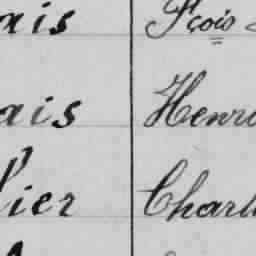 ais Fçois
ais Henri
lier Charl